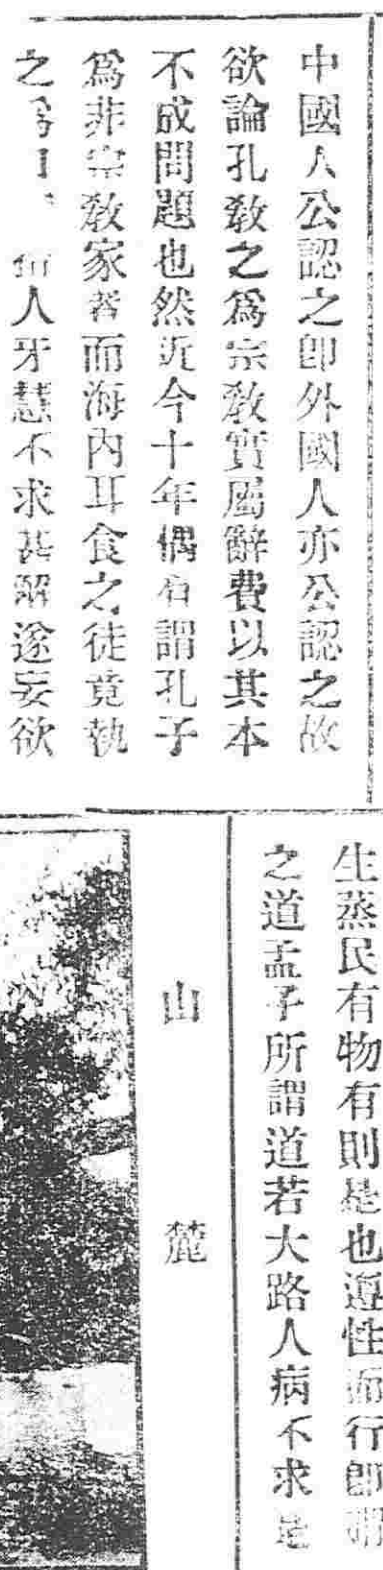 中國人公認之卽外國人亦公認之故
欲論孔敎之爲宗敎實屬辭費以其本
不成問題也然近今十年偶有謂孔子
爲非宗敎家者而海內耳食之徒竟執
之爲口人牙慧不求甚解遂妄欲
生蒸民有物有則是也遵性而行卽謂
之道孟子所謂道若大路人病不求是
山麓